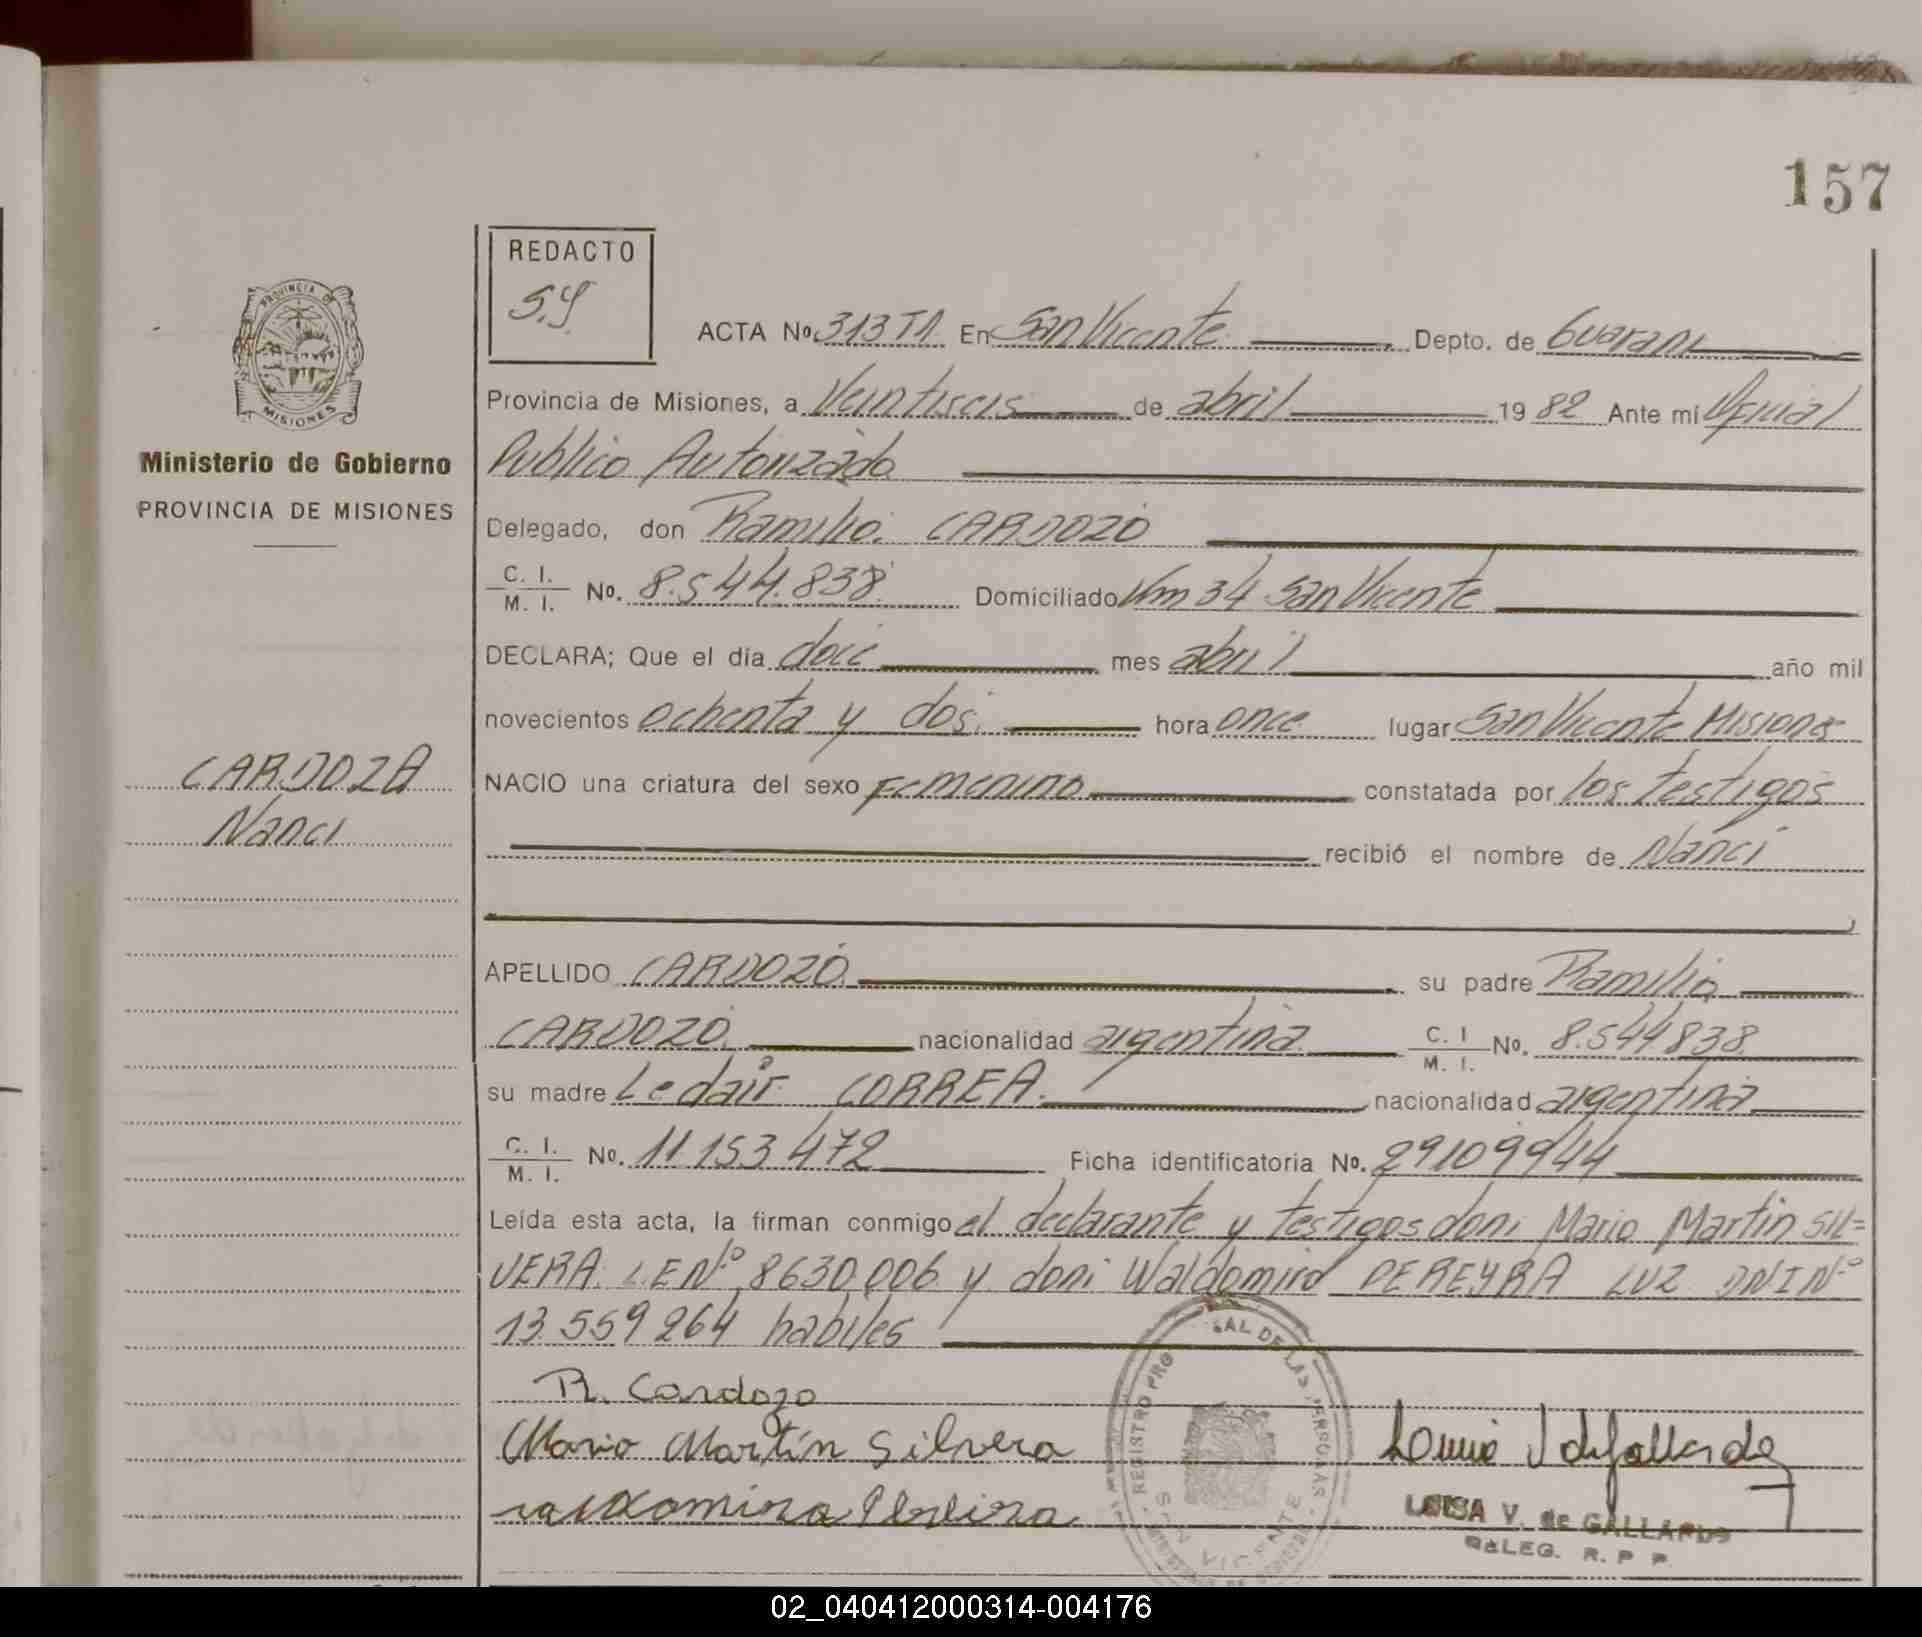 157
REDACTO
S.G.
PROVINCIA DE
MISIONES
Ministerio de Gobierno
PROVINCIA DE MISIONES
ACTA No. 313 T1. En San Vicente Depto. de Guarani
Provincia de Misiones, a Veintiseis de abril 1982 Ante mí Oficial
Publico Autorizado
Delegado, don Ramilio. CARDOZO
C. I. / M. I. No. 8.544.838. Domiciliado Km 34 San Vicente
DECLARA; Que el día doce mes abril año mil
novecientos ochenta y dos. hora once lugar San Vicente Misiones
CARDOZA
Nanci
NACIO una criatura del sexo Femenino constatada por los testigos
recibió el nombre de Nanci
APELLIDO CARDOZO. su padre Ramilio
CARDOZO. nacionalidad argentina C. I / M. I. No. 8.544838
su madre Ledair CORREA. nacionalidad argentina
C. I. / M. I. No. 11 153 472 Ficha identificatoria No. 29109944
Leída esta acta, la firman conmigo el declarante y testigos don: Mario Martin SIL=
VERA L.E Nº 8630.006 y don: Waldomiro PEREYRA LUZ DNI Nº
13.559 264 habiles
R. Cardozo
Mario Martín Silvera
REGISTRO
DE LAS PERSONAS
SAN VICENTE
LUISA V. de GALLARDO
DELEG. R. P. P.
02_040412000314-004176